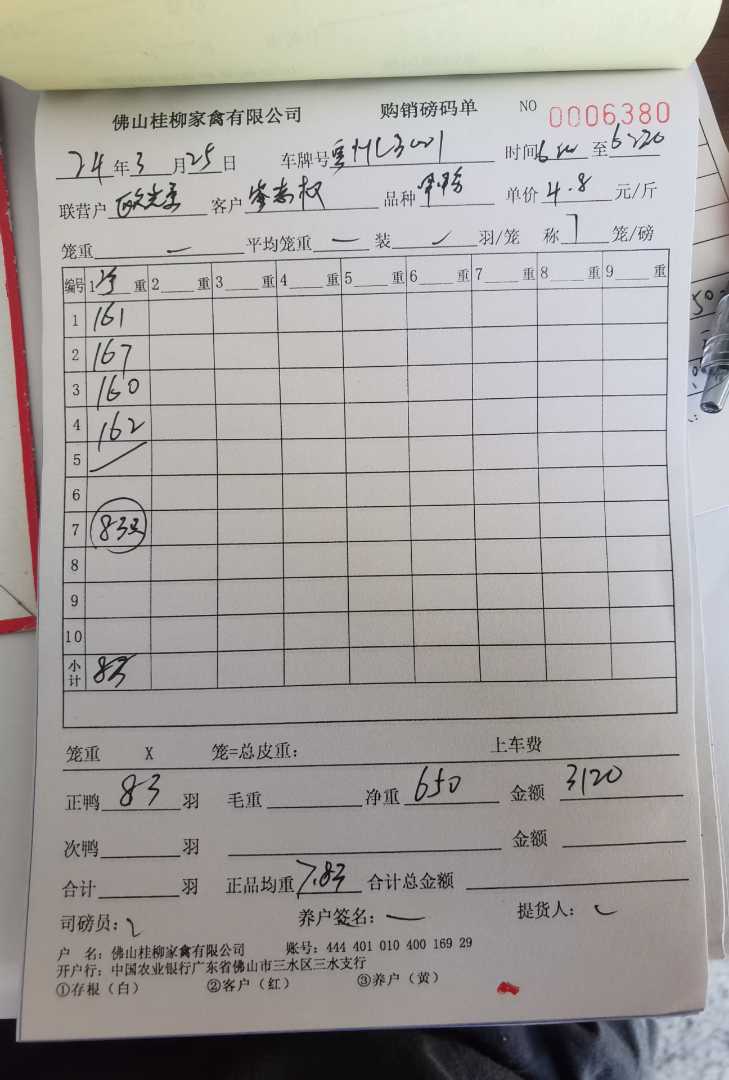 佛山桂柳家禽有限公司 购销磅码单 NO 0006380
24年3月25日 车牌号 时间6 至6:20
联营户 客户 品种 单价4.8元/斤
笼重 — 平均笼重 — 装 ✓ 羽/笼 称 笼/磅
编号 1 重 2 重 3 重 4 重 5 重 6 重 7 重 8 重 9 重
1 161
2 167
3 160
4 162
5
6
7 83只
8
9
10
小计 83
笼重 X 笼=总皮重: 上车费
正鸭 83 羽 毛重 净重 650 金额 3120
次鸭 羽 金额
合计 羽 正品均重 7.83 合计总金额
司磅员: 养户签名: — 提货人:
户 名: 佛山桂柳家禽有限公司 账号: 444 401 010 400 169 29
开户行: 中国农业银行广东省佛山市三水区三水支行
①存根（白） ②客户（红） ③养户（黄）